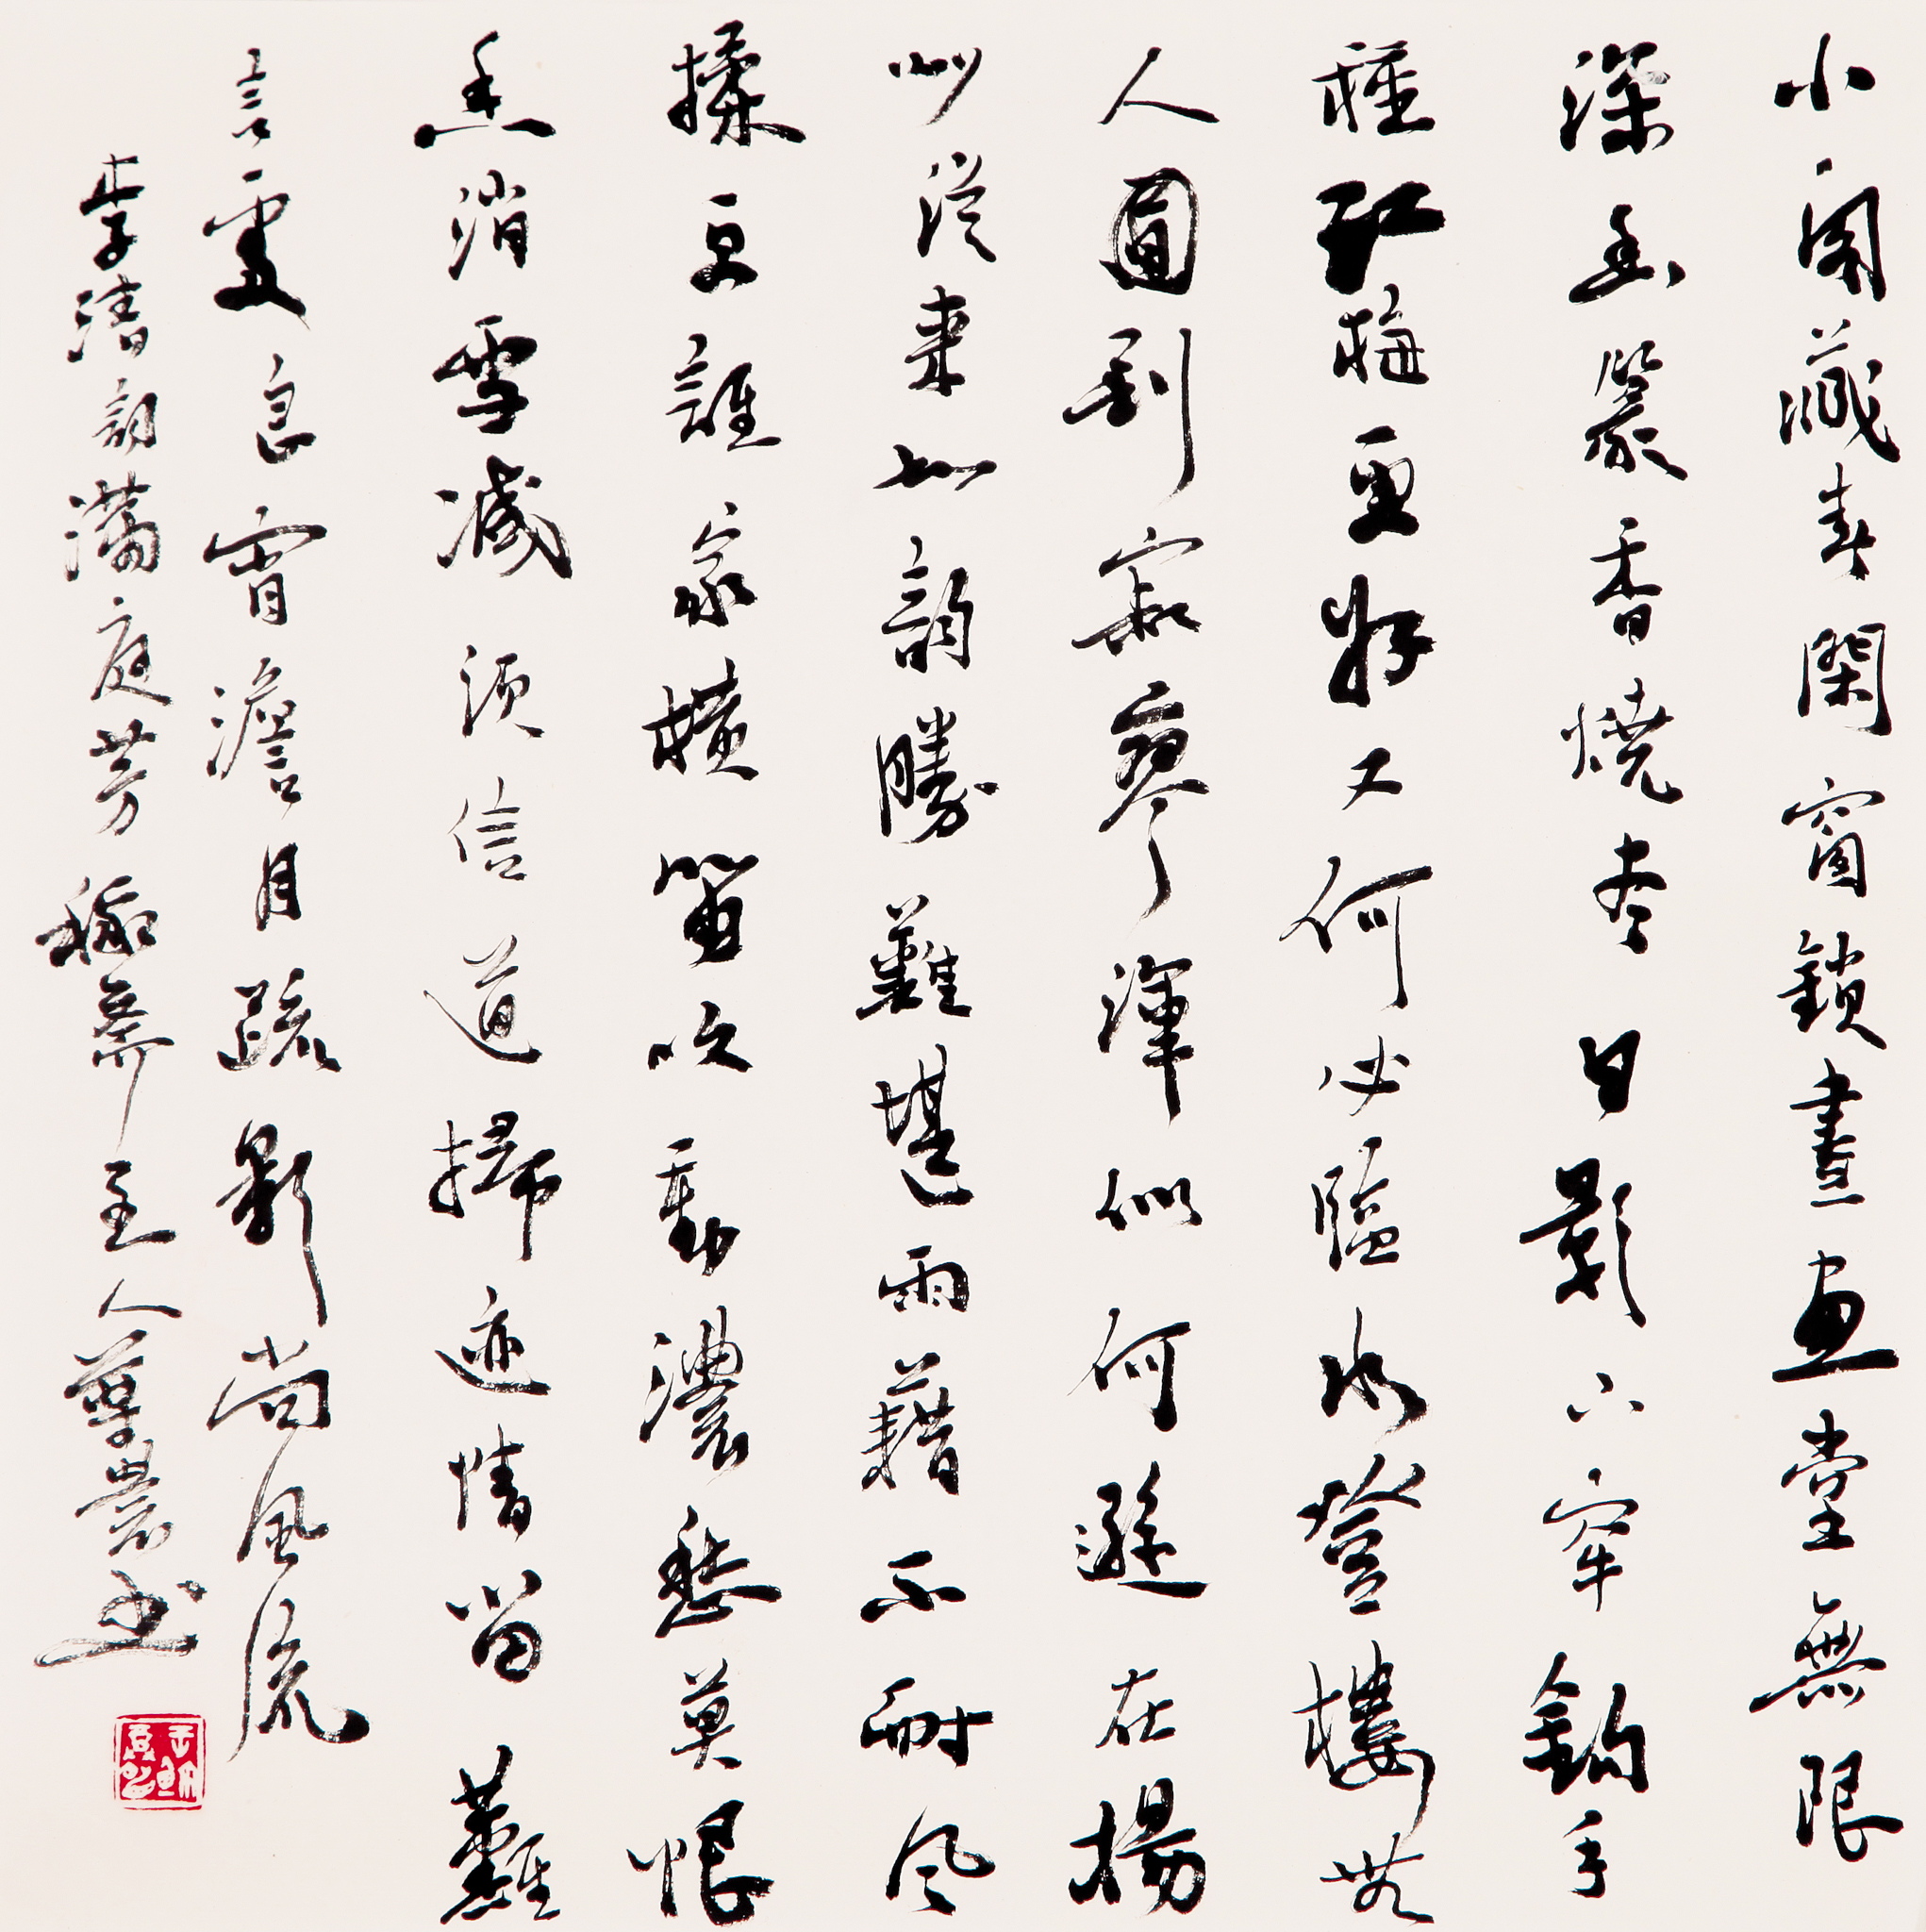 小閣藏春閑窗鎖晝畫堂無限
深幽篆香燒盡日影下帘鈎手
種江梅更好又何必臨水登樓無
人圓到寂寥渾似何遜在揚
州從來如韵勝難堪雨藉不耐風
揉更誰家橫笛吹動濃愁莫恨
香消雪減須信道掃迹情留難
言處良宵澹月疏影尚風流
李清韵滿庭芳 齋主人書